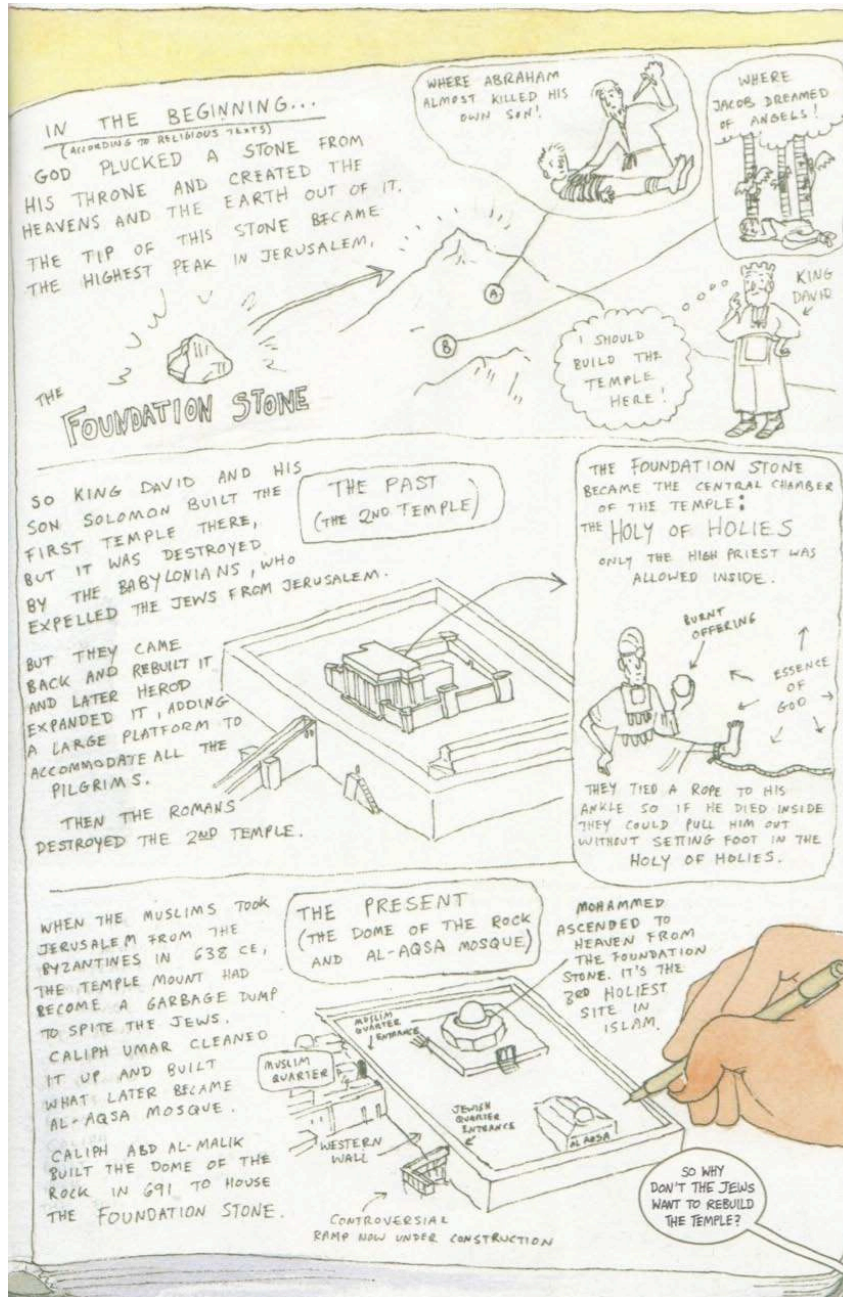 IN THE BEGINNING...
(ACCORDING TO RELIGIOUS TEXTS)
GOD PLUCKED A STONE FROM
HIS THRONE AND CREATED THE
HEAVENS AND THE EARTH OUT OF IT.
THE TIP OF THIS STONE BECAME
THE HIGHEST PEAK IN JERUSALEM.
THE
FOUNDATION STONE
WHERE ABRAHAM
ALMOST KILLED HIS
OWN SON!
WHERE
JACOB DREAMED
OF ANGELS!
A
B
KING
DAVID
I SHOULD
BUILD THE
TEMPLE
HERE!
SO KING DAVID AND HIS
SON SOLOMON BUILT THE
FIRST TEMPLE THERE,
BUT IT WAS DESTROYED
BY THE BABYLONIANS, WHO
EXPELLED THE JEWS FROM JERUSALEM.
BUT THEY CAME
BACK AND REBUILT IT
AND LATER HEROD
EXPANDED IT, ADDING
A LARGE PLATFORM TO
ACCOMMODATE ALL THE
PILGRIMS.
THEN THE ROMANS
DESTROYED THE 2ND TEMPLE.
THE PAST
(THE 2ND TEMPLE)
THE FOUNDATION STONE
BECAME THE CENTRAL CHAMBER
OF THE TEMPLE:
THE HOLY OF HOLIES
ONLY THE HIGH PRIEST WAS
ALLOWED INSIDE.
BURNT
OFFERING
ESSENCE
OF
GOD
THEY TIED A ROPE TO HIS
ANKLE SO IF HE DIED INSIDE
THEY COULD PULL HIM OUT
WITHOUT SETTING FOOT IN THE
HOLY OF HOLIES.
WHEN THE MUSLIMS TOOK
JERUSALEM FROM THE
BYZANTINES IN 638 CE,
THE TEMPLE MOUNT HAD
BECOME A GARBAGE DUMP
TO SPITE THE JEWS.
CALIPH UMAR CLEANED
IT UP AND BUILT
WHAT LATER BECAME
AL-AQSA MOSQUE.
CALIPH ABD AL-MALIK
BUILT THE DOME OF THE
ROCK IN 691 TO HOUSE
THE FOUNDATION STONE.
THE PRESENT
(THE DOME OF THE ROCK
AND AL-AQSA MOSQUE)
MOHAMMED
ASCENDED TO
HEAVEN FROM
THE FOUNDATION
STONE. IT'S THE
3RD HOLIEST
SITE IN
ISLAM.
MUSLIM
QUARTER
ENTRANCE
MUSLIM
QUARTER
JEWISH
QUARTER
ENTRANCE
AL AQSA
WESTERN
WALL
CONTROVERSIAL
RAMP NOW UNDER CONSTRUCTION
SO WHY
DON'T THE JEWS
WANT TO REBUILD
THE TEMPLE?